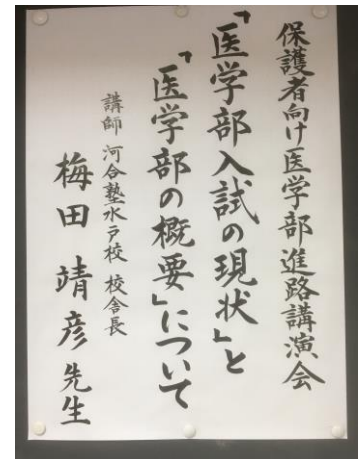 保護者向け医学部進路講演会
「医学部入試の現状」と
「医学部の概要」について
講師 河合塾水戸校 校舎長
梅田 靖彦 先生